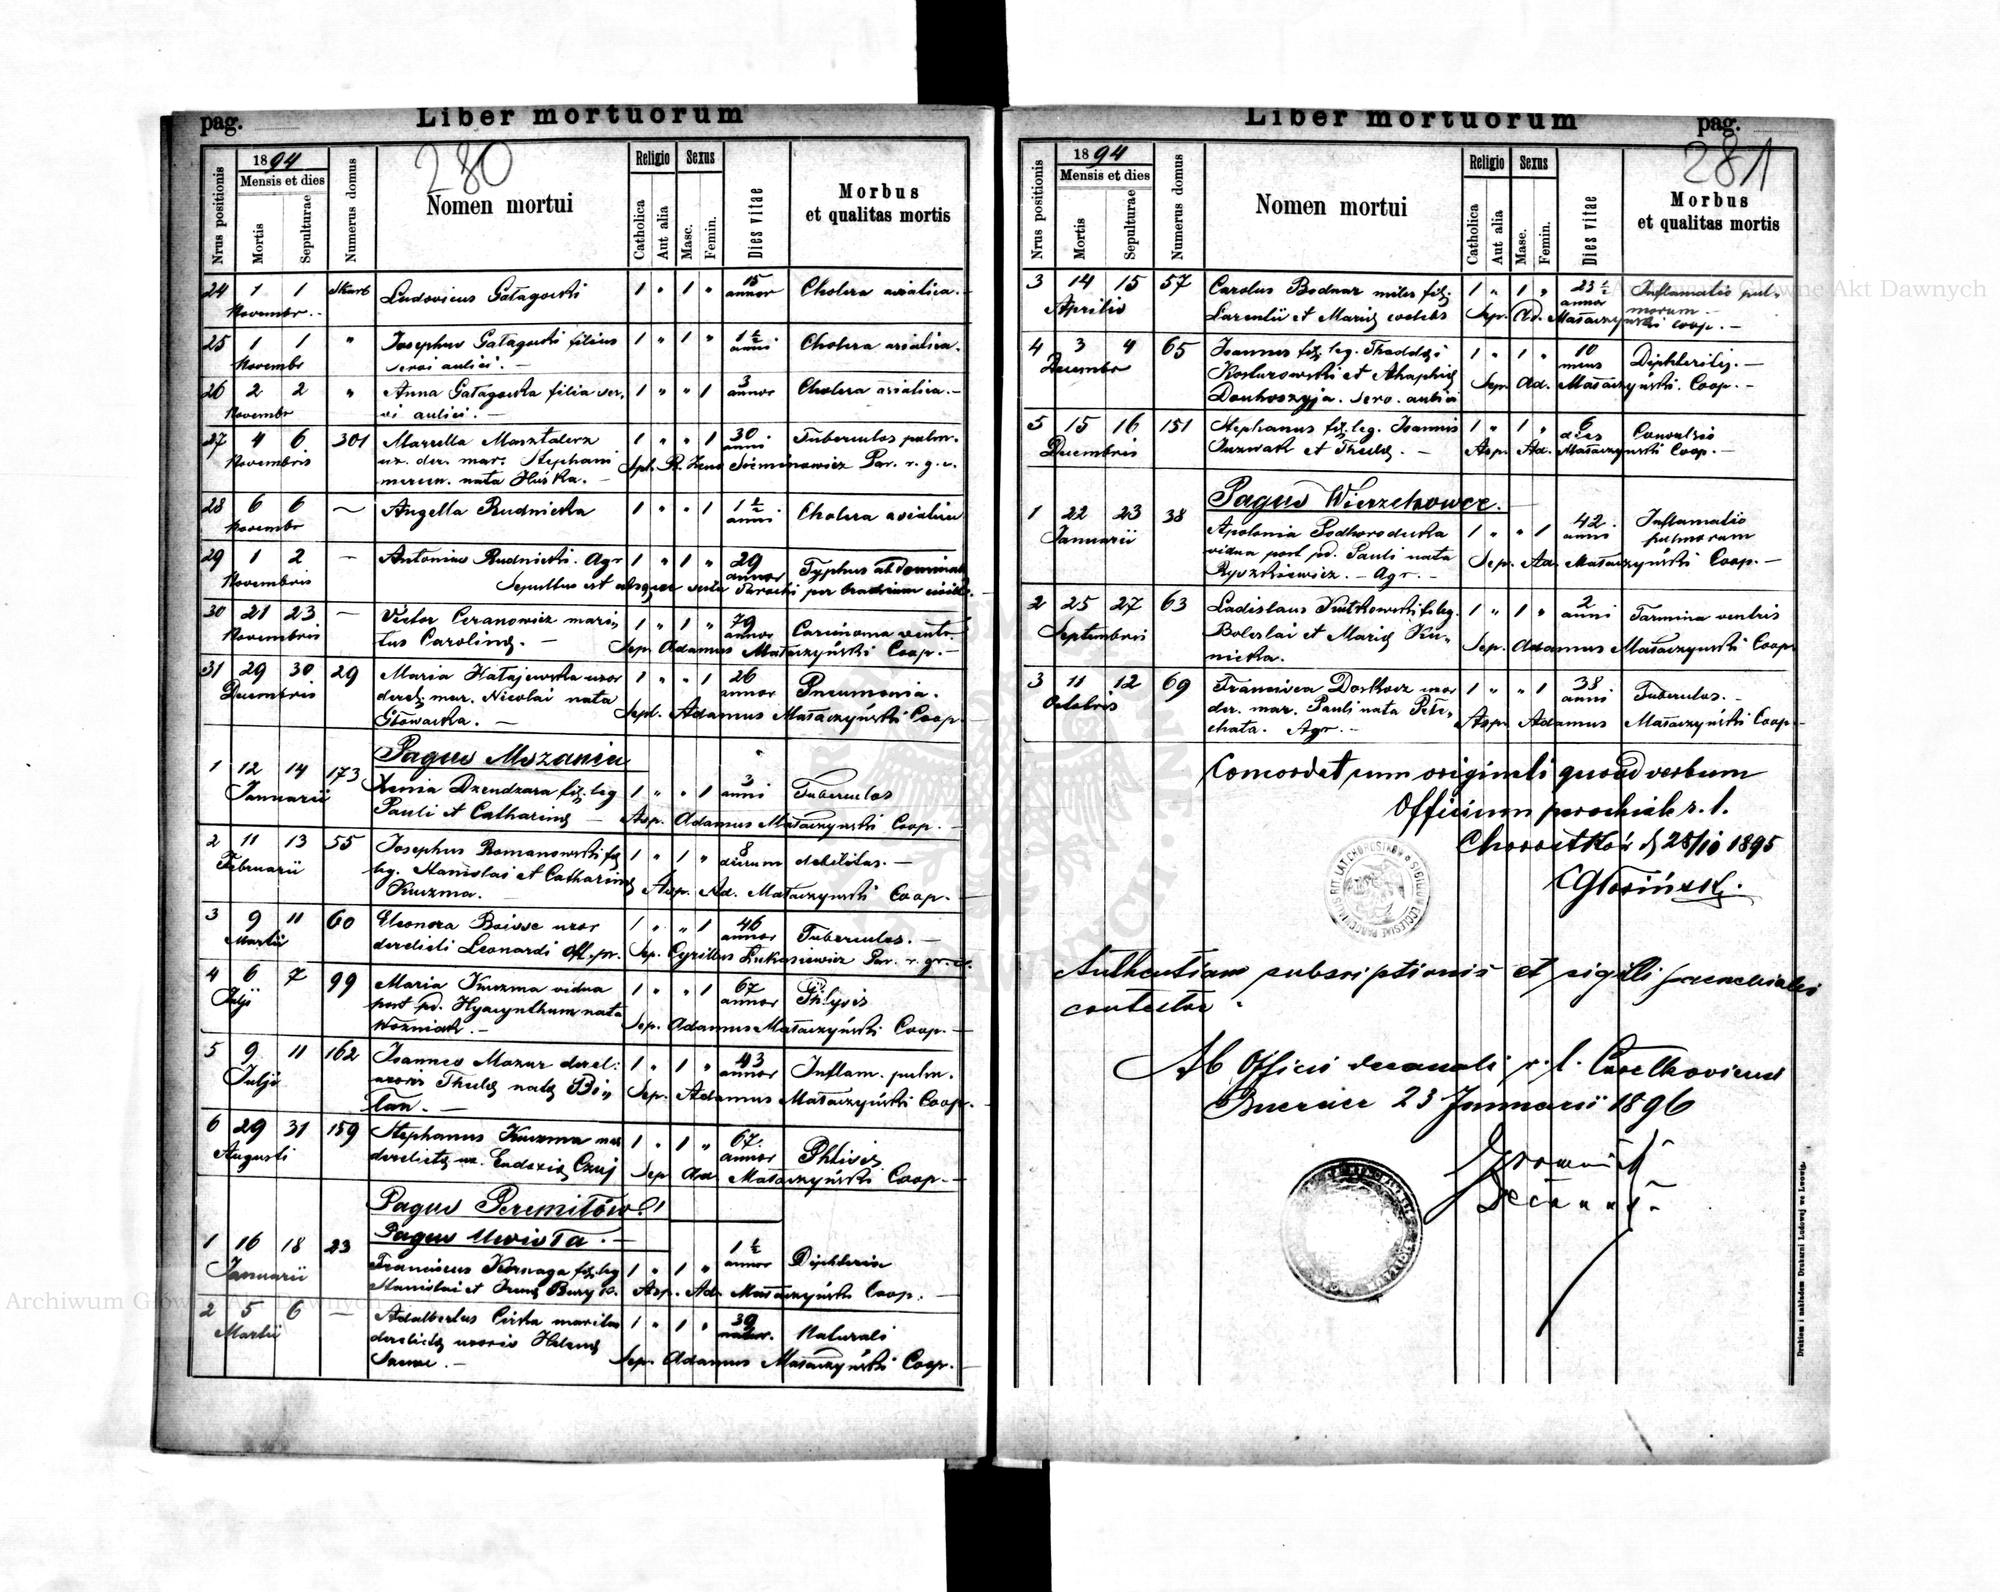 pag.
Liber mortuorum
280
Nrus positionis
1894
Mensis et dies
Mortis
Sepulturae
Numerus domus
Nomen mortui
Religio
Catholica
Aut alia
Sexus
Masc.
Femin.
Dies vitae
Morbus
et qualitas mortis
24 1 1 Ludovicus Gałagowski 1 " 1 " 15 Cholera asiatica.
Novembr. annor
25 1 1 " Josephus Gałagowski filius 1 " 1 " 1 ½ Cholera asiatica.
Novembr servi aulici. — anni
26 2 2 " Anna Gałagowska filia ser, 1 " " 1 3 Cholera asiatica. —
Novembr vi aulici. — annor
27 4 6 301 Marcella 1 " " 1 30 Tuberculos pulm.
Novembris ux. der. mar. Stephani anni
nata Huska. — Par. r. g. c.
28 6 6 — Angella Rudnicka 1 " " 1 1 ½ Cholera asiatica
Novembr anni
29 1 2 — Antonius Rudnicki. Agr 1 " 1 " 29 Typhus abdominal
Novembris annor
Sepultus est absque Parochi per
30 21 23 — Victor Ceranowicz mari, 1 " 1 " 79 Carcinoma ventr.
Novembris tus Carolinę. — annor
Sep. Adamus Małaczyński Coop. —
31 29 30 29 Maria Hatajewska uxor 1 " " 1 26 Pneumonia.
Decembris derel. mar. Nicolai nata annor
Głowacka. — Sepl. Adamus Małaczyński Coop
Pagus Mszaniec
1 12 14 173 Xenia Dzendzara fil. leg 1 " " 1 3 Tuberculos
Januarii Pauli et Catharinę — anni
Asp. Adamus Małaczyński Coop. —
2 11 13 55 Josephus Romanowski fil 1 " 1 " 8 debilitas. —
Februarii leg. Stanislai et Catharinę dierum
Kuzma. Asp. Ad. Małaczyński Coop. —
3 9 11 60 Eleonora Boisse uxor 1 " " 1 46 Tuberculos. —
Martii derelicti Leonardi Off. pr. annor
Sep. Cyrillus Łukasiewicz Par. r. gr. c.
4 6 7 99 Maria Kuzma vidua 1 " " 1 67 Phtysis
Julji post pd. Hyacynthum nata annor
Wozniak. — Sep. Adamus Małaczyński Coop. —
5 9 11 162 Joannes Mazur derel. 1 " 1 " 43 Inflam. pulm.
Julji uxoris Theclę natę Bi, annor
łan. — Sep. Adamus Małaczyński Coop.
6 29 31 159 Stephanus Kuzma mar 1 " 1 " 67. Phtisis
Augusti derelictę ux. Eudoxię Czuj annor
Sep. Ad. Małaczyński Coop. —
Pagus Peremiłów
Pagus Uwisła. —
1 16 18 23 Franciscus Kernaga fil. leg 1 " 1 " 1 ½ Diphteria
Januarii Stanislai et annor
Asp. Ad. Małaczyński Coop. —
2 5 6 — Adalbertus Cirka maritus 1 " 1 " 39 Naturalis
Martii derelictę uxoris Helenę
Sep. Adamus Małaczyński Coop. —
Liber mortuorum
pag.
281
Nrus positionis
1894
Mensis et dies
Mortis
Sepulturae
Numerus domus
Nomen mortui
Religio
Catholica
Aut alia
Sexus
Masc.
Femin.
Dies vitae
Morbus
et qualitas mortis
3 14 15 57 Carolus Bodnar miles fil. 1 " 1 " 23 ½ Inflamatio pul,
Aprilis Laurentii et Marię coelebs annor monum —
Sep. Ad. Małaczyński Coop. —
4 3 4 65 Joannes fil. leg. Thaddęi 1 " 1 " 10 Diphteritis. —
Decembr Kosturowski et Ahaphię mens
serv. aulici Sep. Ad. Małaczyński. Coop. —
5 15 16 151 Stephanus fil. leg. Joannis 1 " 1 " 6 Convulsio
Decembris Juzwak et Theclę. — dies
Asp. Ad. Małaczyński Coop. —
Pagus Wierzchowce.
1 22 23 38 Apolonia Podhorodecka 1 " " 1 42. Inflamatio
Januarii vidua post pd. Pauli nata anni pulmorum
Ryszkiewicz. — Agr. — Sep. Ad. Małaczyński Coop. —
2 25 27 63 Ladislaus Kutkowski fil. leg. 1 " 1 " 2 Tarmina ventris
Septembris Boleslai et Marię Ku, anni
nicka. Sep. Adamus Małaczyński Coop
3 11 12 69 Francisca Dorkocz uxor 1 " " 1 38 Tuberculos. —
Octobris der. mar. Pauli nata Pete, anni
chata. Agr. — Asp. Adamus Małaczyński Coop. —
Concordat cum originali quoad verbum
Officium parochiale r. l.
Chorostków d 28/10 1895
Głosiński.
Authentiam subscriptionis et sigilli parochialis
contestor.
Ab Officio decanali r. l. Czortkoviensi
23 Januarii 1896
Decanus
Drukiem i nakładem Drukarni Ludowej we Lwowie.
Archiwum Główne Akt Dawnych
Archiwum Główne Akt Dawnych